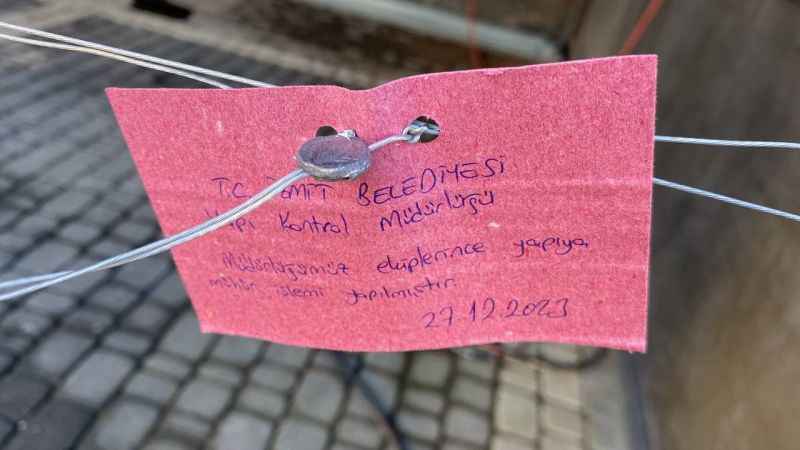 T.C. İZMİT BELEDİYESİ
Yapı Kontrol Müdürlüğü
Müdürlüğümüz ekiplerince yapıya
mühür işlemi yapılmıştır.
27.12.2023